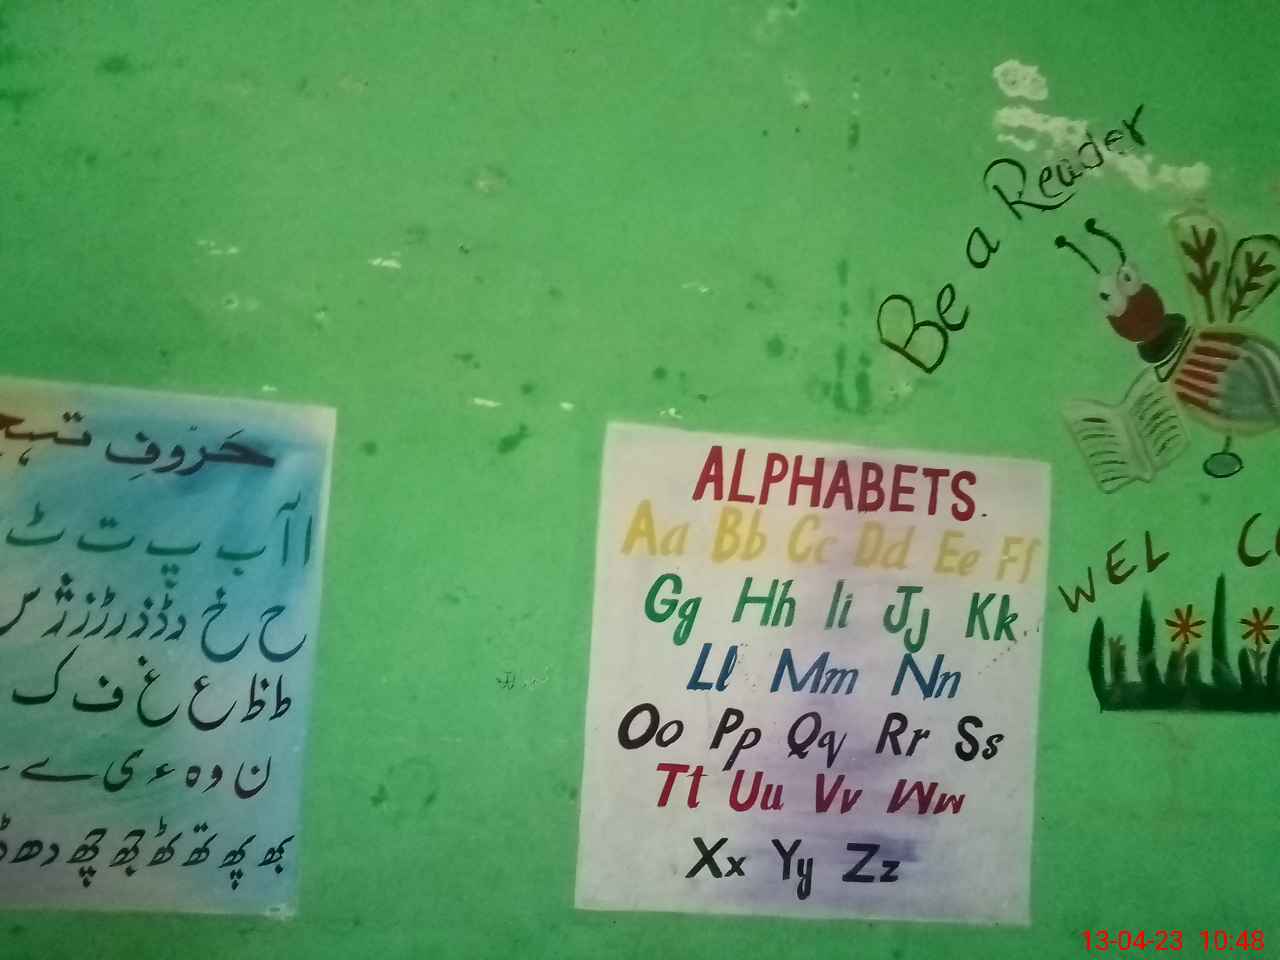 Be a Reader
حروفِ
ا آ ب پ ت ٹ
ح خ د ڈ ذ ر ڑ ز ژ س
ط ظ ع غ ف ک
ن و ہ ء ی ے
بھ پھ تھ ٹھ جھ چھ دھ
ALPHABETS.
Aa Bb Cc Dd Ee Ff
Gg Hh Ii Jj Kk
Ll Mm Nn
Oo Pp Qq Rr Ss
Tt Uu Vv Ww
Xx Yy Zz
WEL
13-04-23 10:48